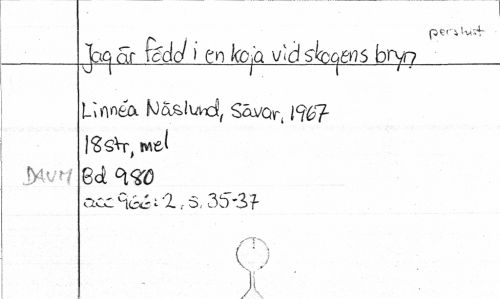 perslust
Jag är född i en koja vid skogens bryn
Linnéa Näslund, Sävar, 1967
18 str, mel
DAUM Bd 980
acc 966:2, s. 35-37